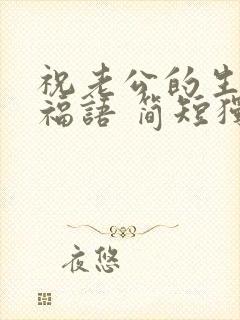 祝老公的生
福語 简短獨
夜悠